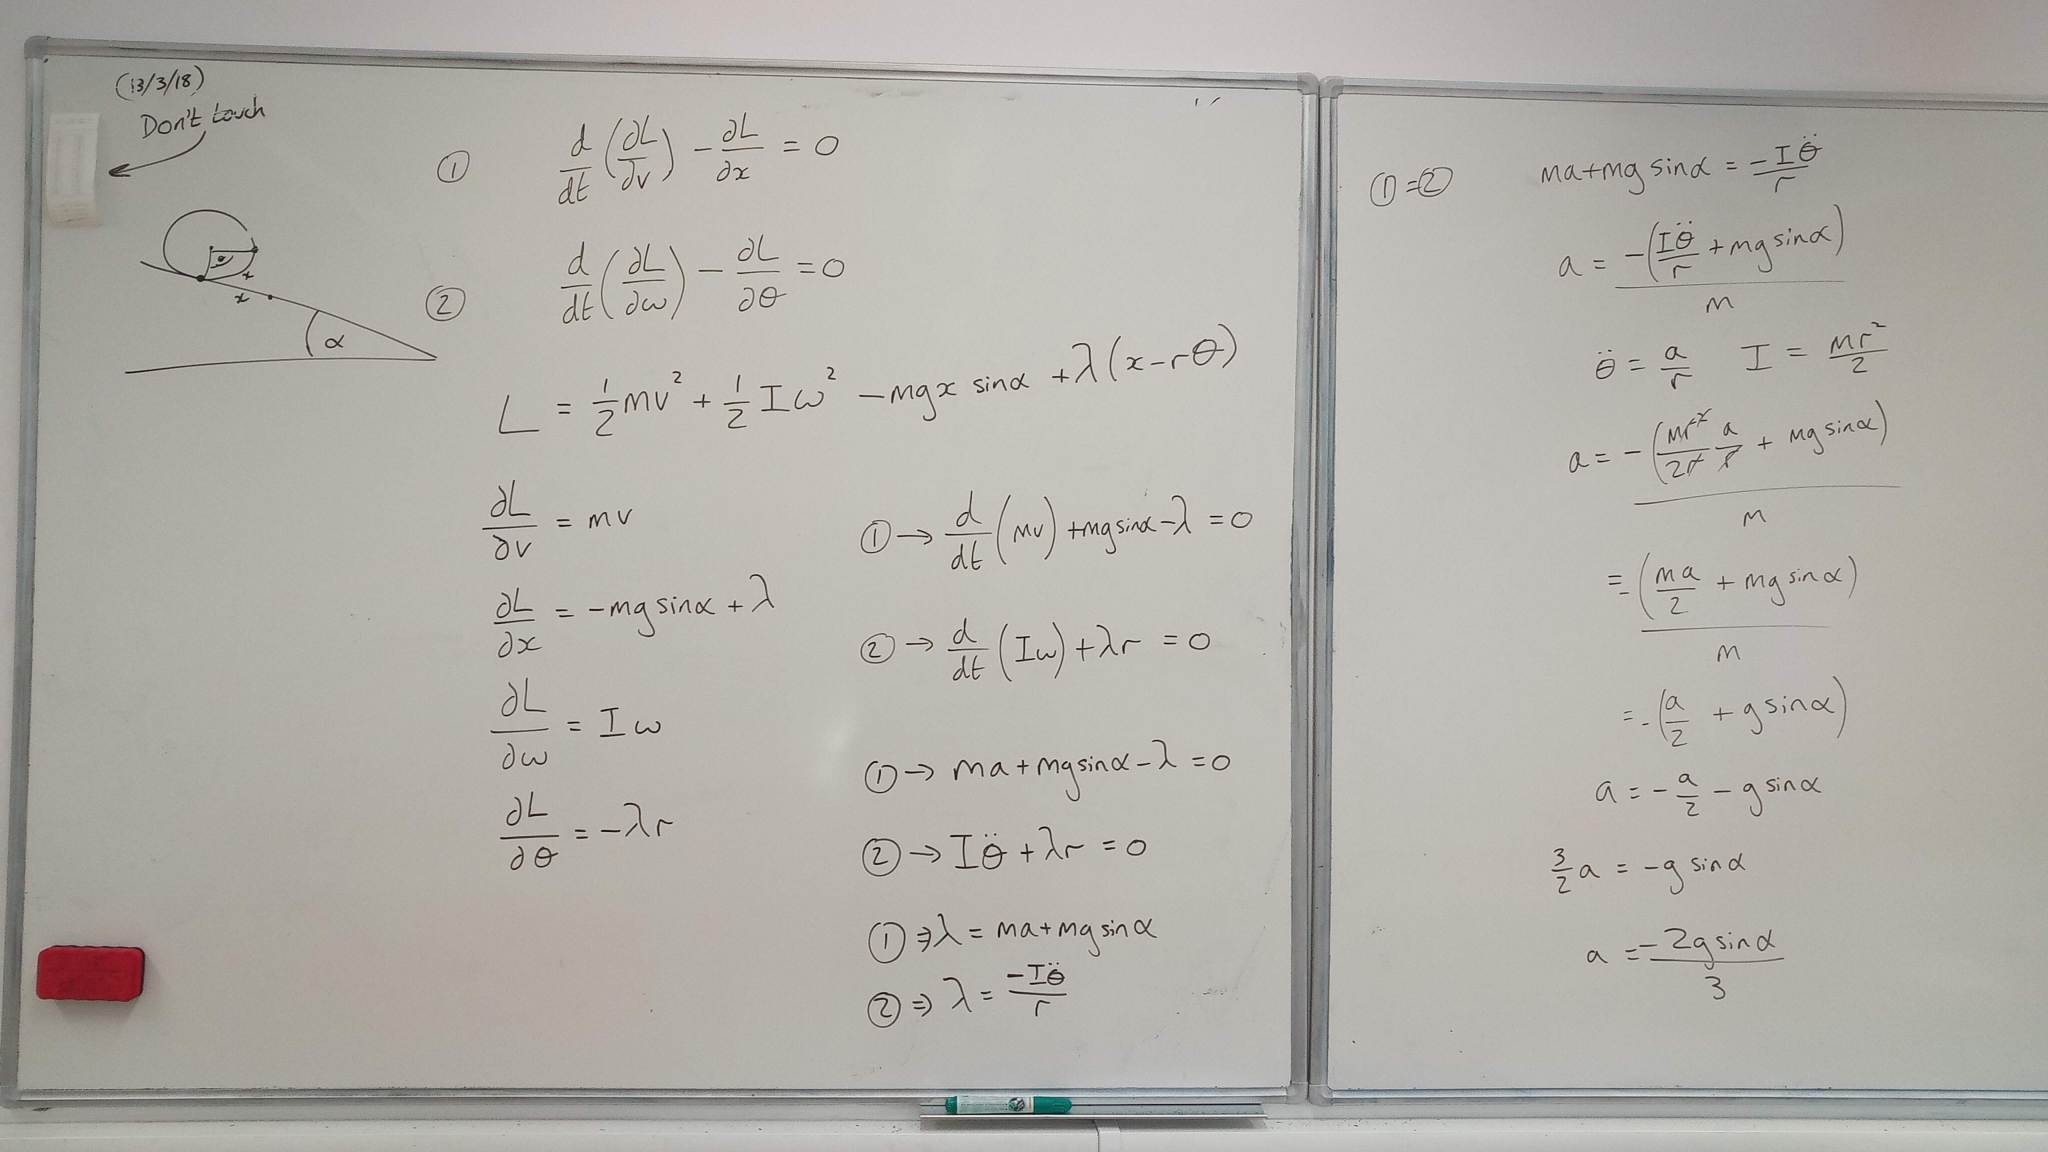 (13/3/18)
Don't touch
θ
x
x
α
① d/dt (∂L/∂v) - ∂L/∂x = 0
② d/dt (∂L/∂ω) - ∂L/∂θ = 0
L = 1/2 mv² + 1/2 Iω² - mgx sinα + λ(x - rθ)
∂L/∂v = mv
∂L/∂x = -mg sinα + λ
∂L/∂ω = Iω
∂L/∂θ = -λr
① → d/dt (mv) + mg sinα - λ = 0
② → d/dt (Iω) + λr = 0
① → ma + mg sinα - λ = 0
② → Iθ̈ + λr = 0
① ⇒ λ = ma + mg sinα
② ⇒ λ = -Iθ̈/r
① = ② ma + mg sinα = -Iθ̈/r
a = -(Iθ̈/r + mg sinα)/m
θ̈ = a/r I = mr²/2
a = -(mr²/2r a/r + mg sinα)/m
= -(ma/2 + mg sinα)/m
= -(a/2 + g sinα)
a = -a/2 - g sinα
3/2 a = -g sinα
a = -2g sinα/3